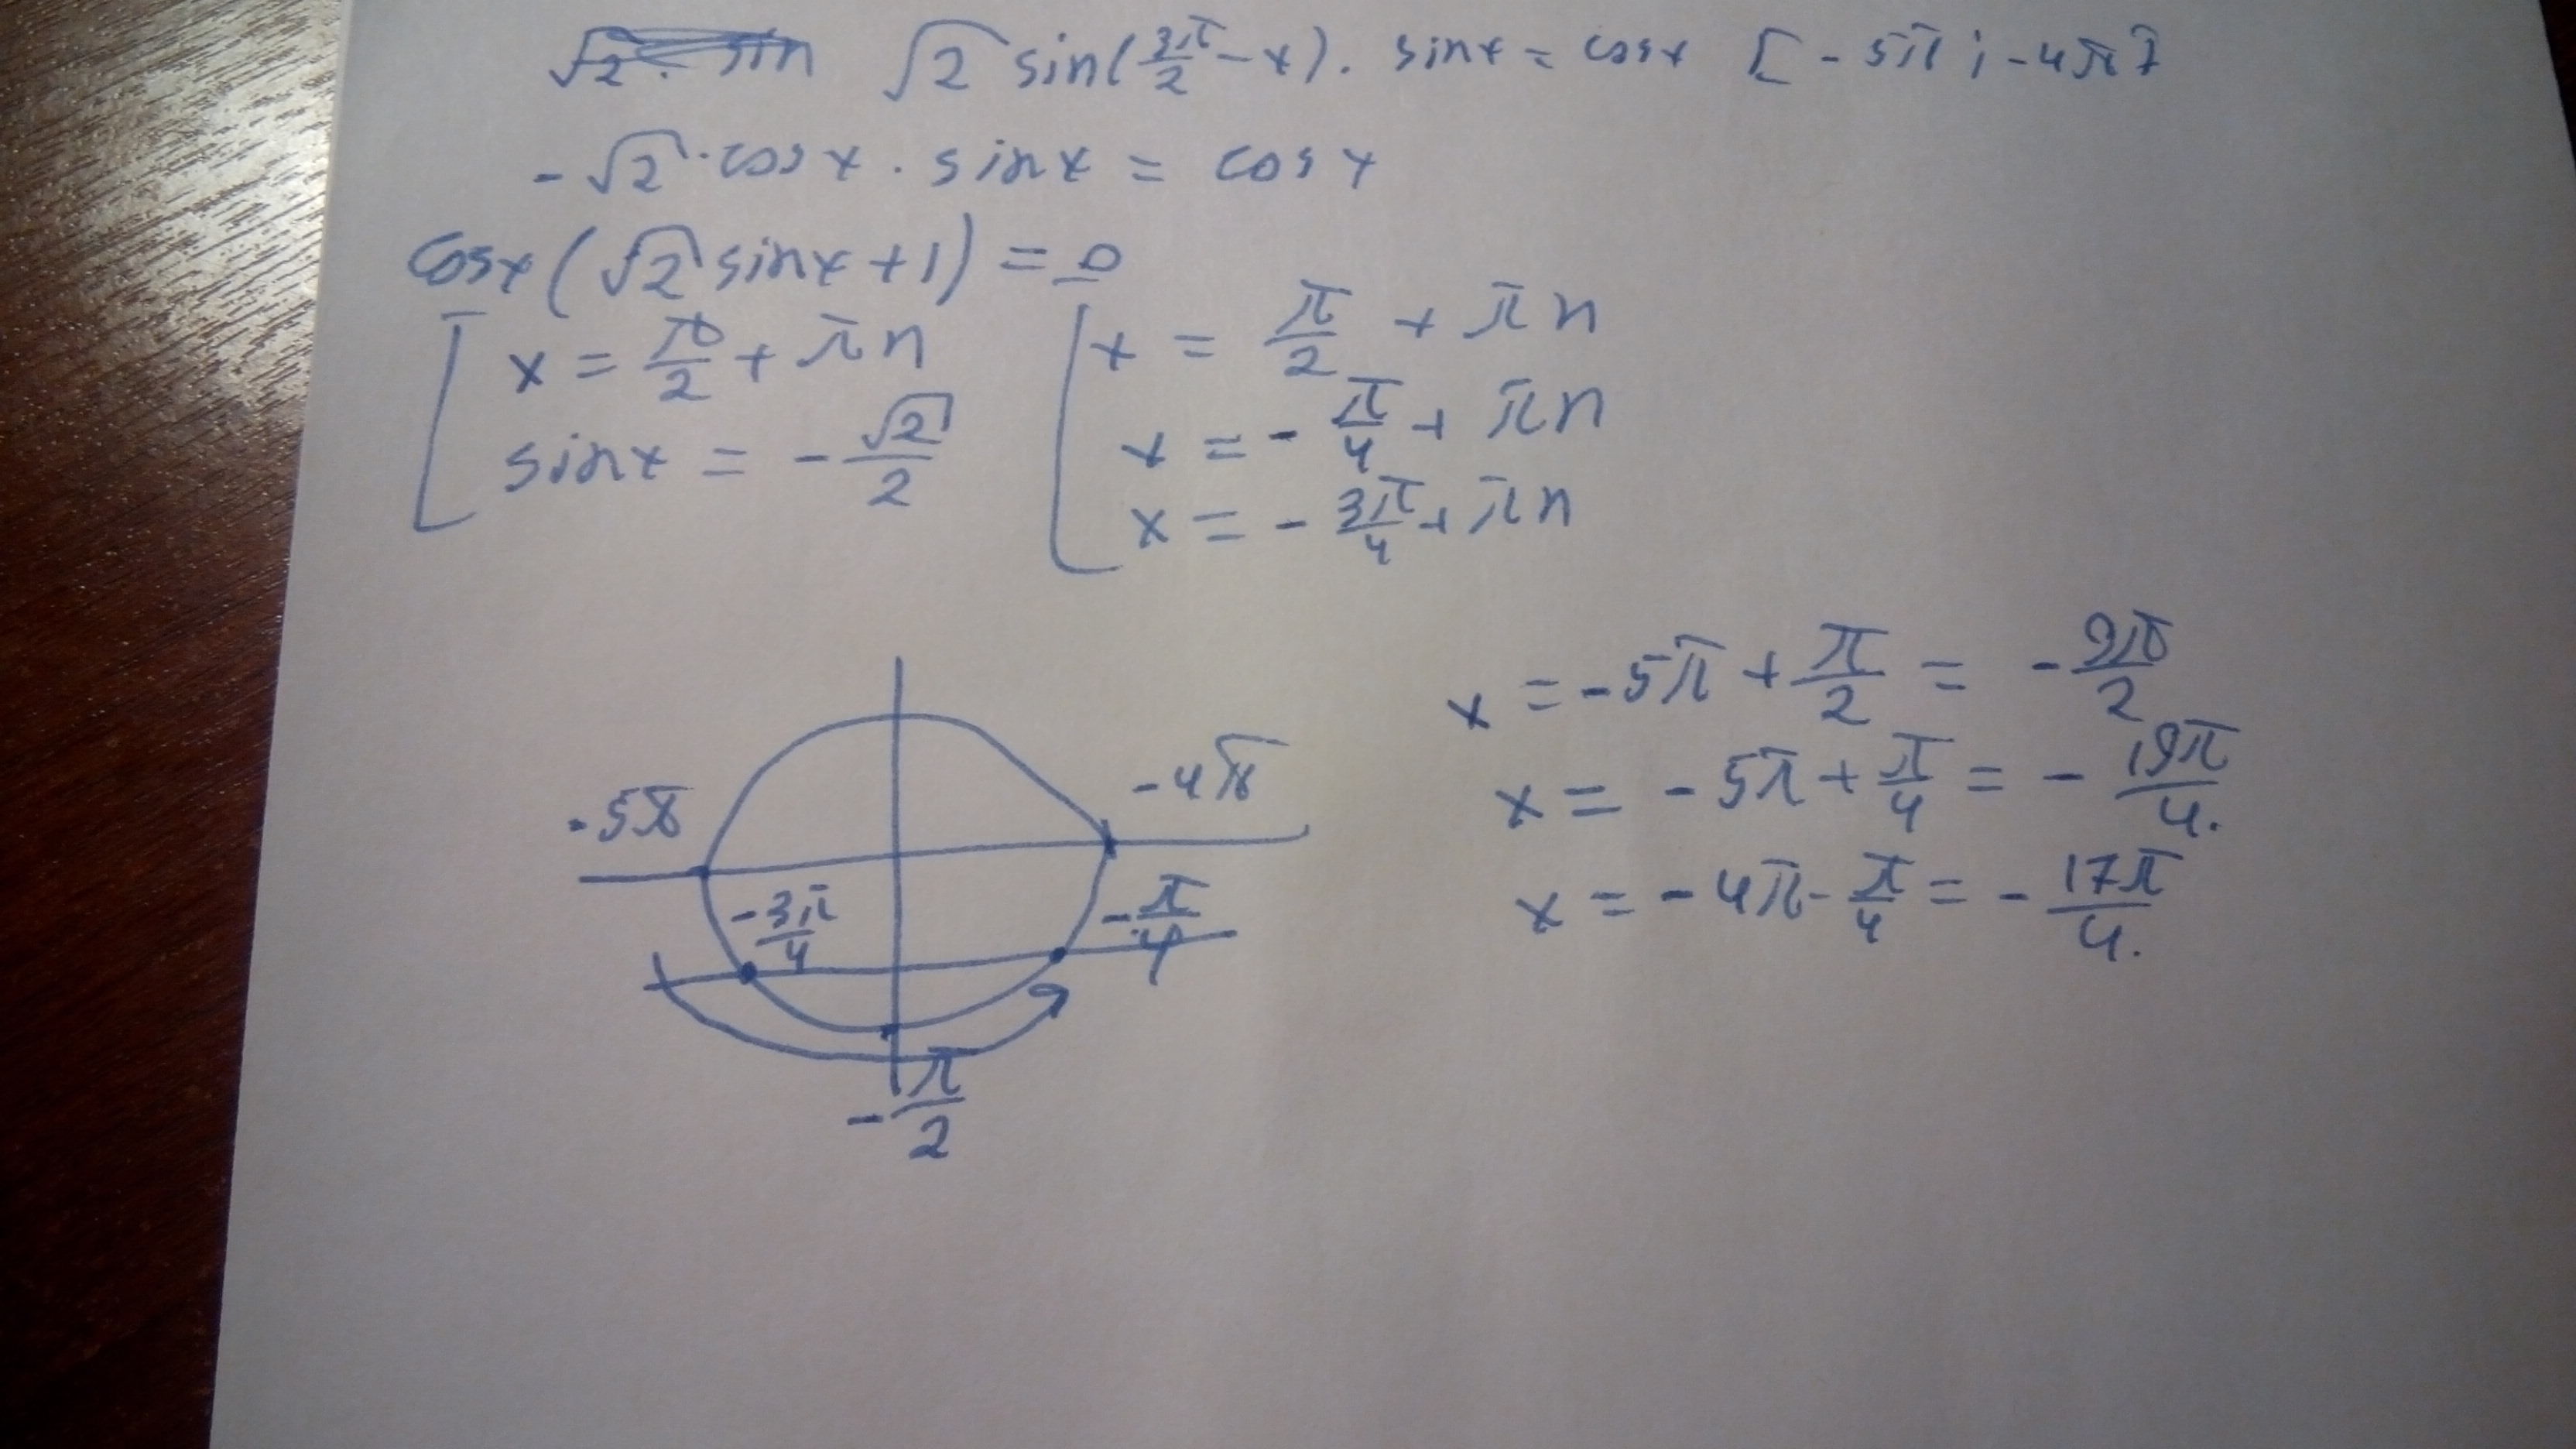 √2 sin(3π/2 - x) · sinx = cosx [-5π; -4π]
-√2 · cosx · sinx = cosx
cosx(√2 sinx + 1) = 0
x = π/2 + πn
sinx = -√2/2
x = π/2 + πn
x = -π/4 + πn
x = -3π/4 + πn
x = -5π + π/2 = -9π/2
x = -5π + π/4 = -19π/4.
x = -4π - π/4 = -17π/4.
-5π
-4π
-3π/4
-π/4
-π/2